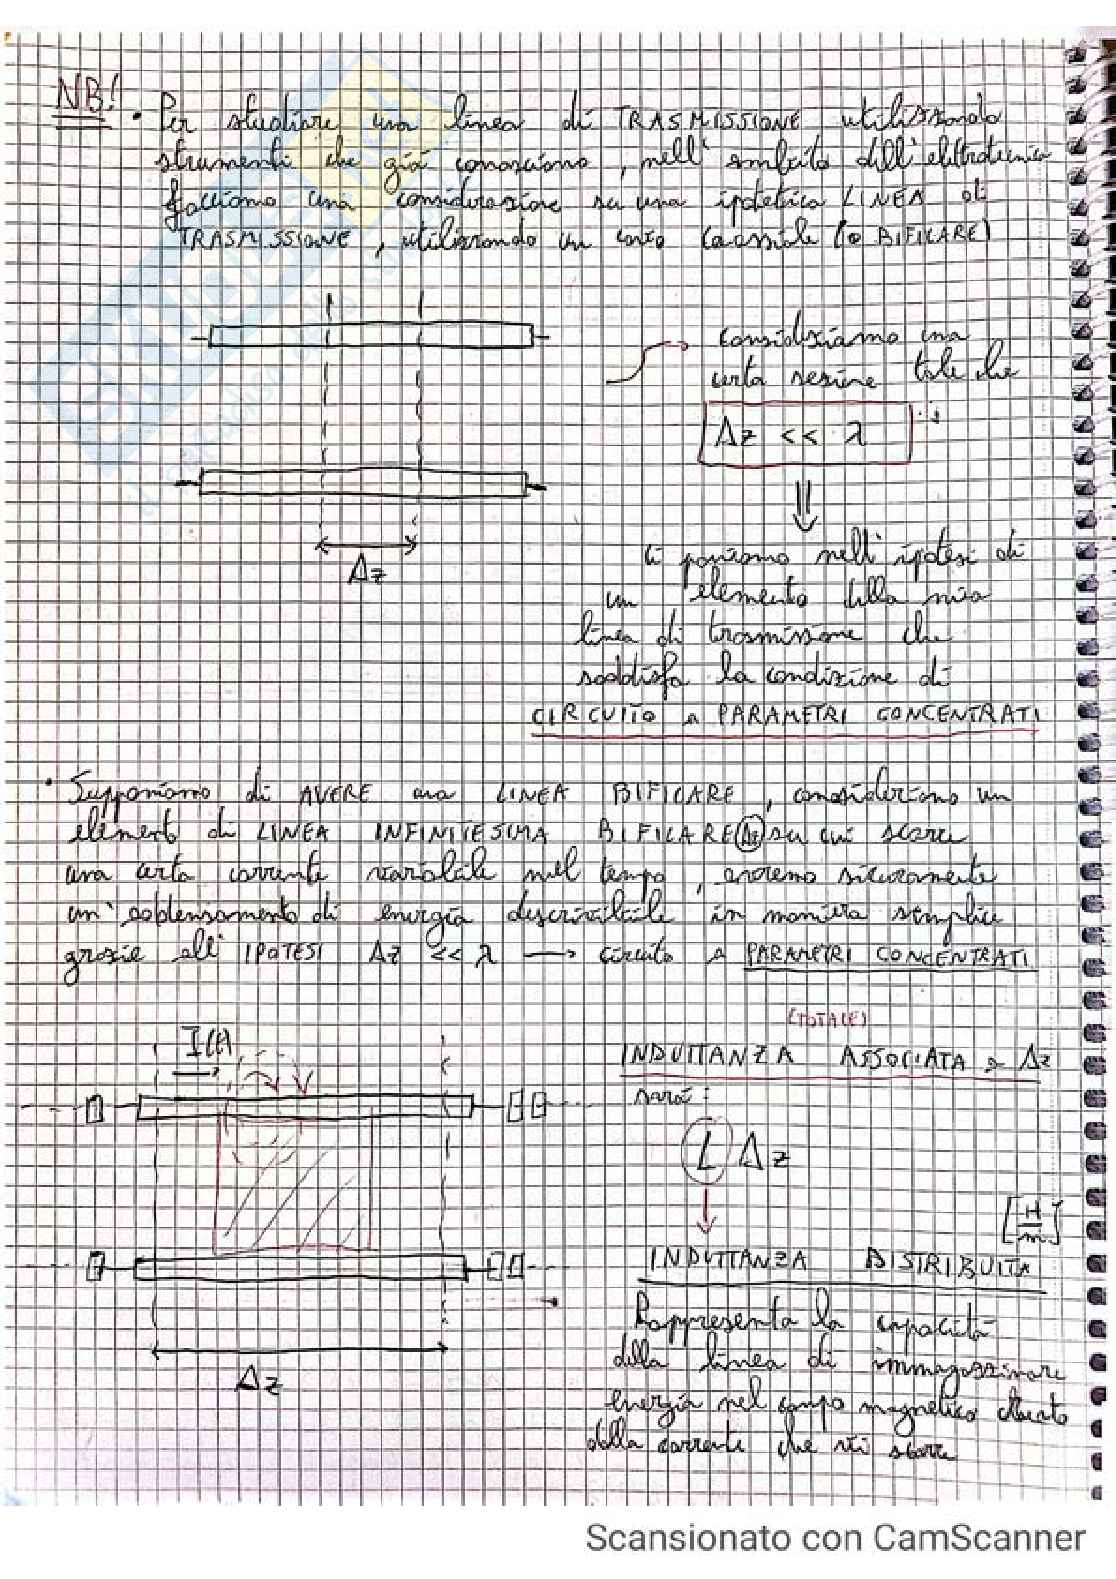 NB! • Per studiare una linea di TRASMISSIONE utilizzando
strumenti che già conosciamo, nell'ambito dell'elettrotecnica
facciamo una considerazione su una ipotetica LINEA di
TRASMISSIONE, utilizzando un cavo coassiale (o BIFILARE)
consideriamo una
certa sezione tale che
Δz << λ
Δz
ci poniamo nell'ipotesi di
un elemento della mia
linea di trasmissione che
soddisfa la condizione di
CIRCUITO a PARAMETRI CONCENTRATI
• Supponiamo di AVERE una LINEA BIFILARE, consideriamo un
elemento di LINEA INFINITESIMA BIFILARE Δz su cui scorre
una certa corrente variabile nel tempo, avremo sicuramente
un addensamento di energia descrivibile in maniera semplice
grazie all'IPOTESI Δz << λ → circuito a PARAMETRI CONCENTRATI
(TOTALE)
I(t)
INDUTTANZA ASSOCIATA a Δz
sarà:
L Δz
[H/m]
INDUTTANZA DISTRIBUITA
Rappresenta la capacità
della linea di immagazzinare
energia nel campo magnetico
dalla corrente che vi scorre
Δz
Scansionato con CamScanner